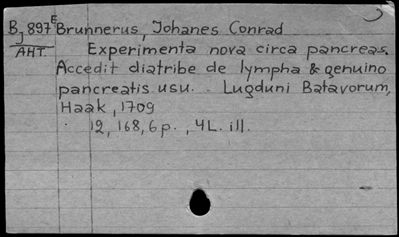 B 897E Brunnerus, Johanes Conrad
J
AHT. Experimenta nova circa pancreas.
Accedit diatribe de lympha & genuino
pancreatis usu. . Lugduni Batavorum,
Haak, 1709
12, 168, 6 p., 4 L. ill.